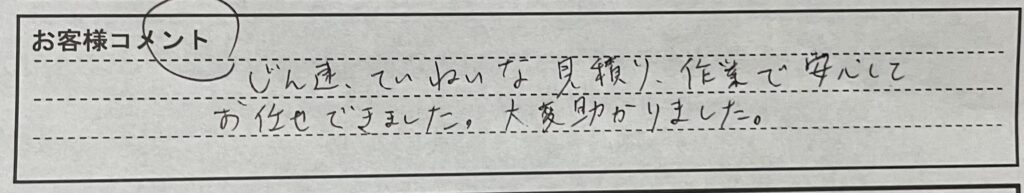 お客様コメント
じん速、ていねいな見積り、作業で安心して
お任せできました。大変助かりました。